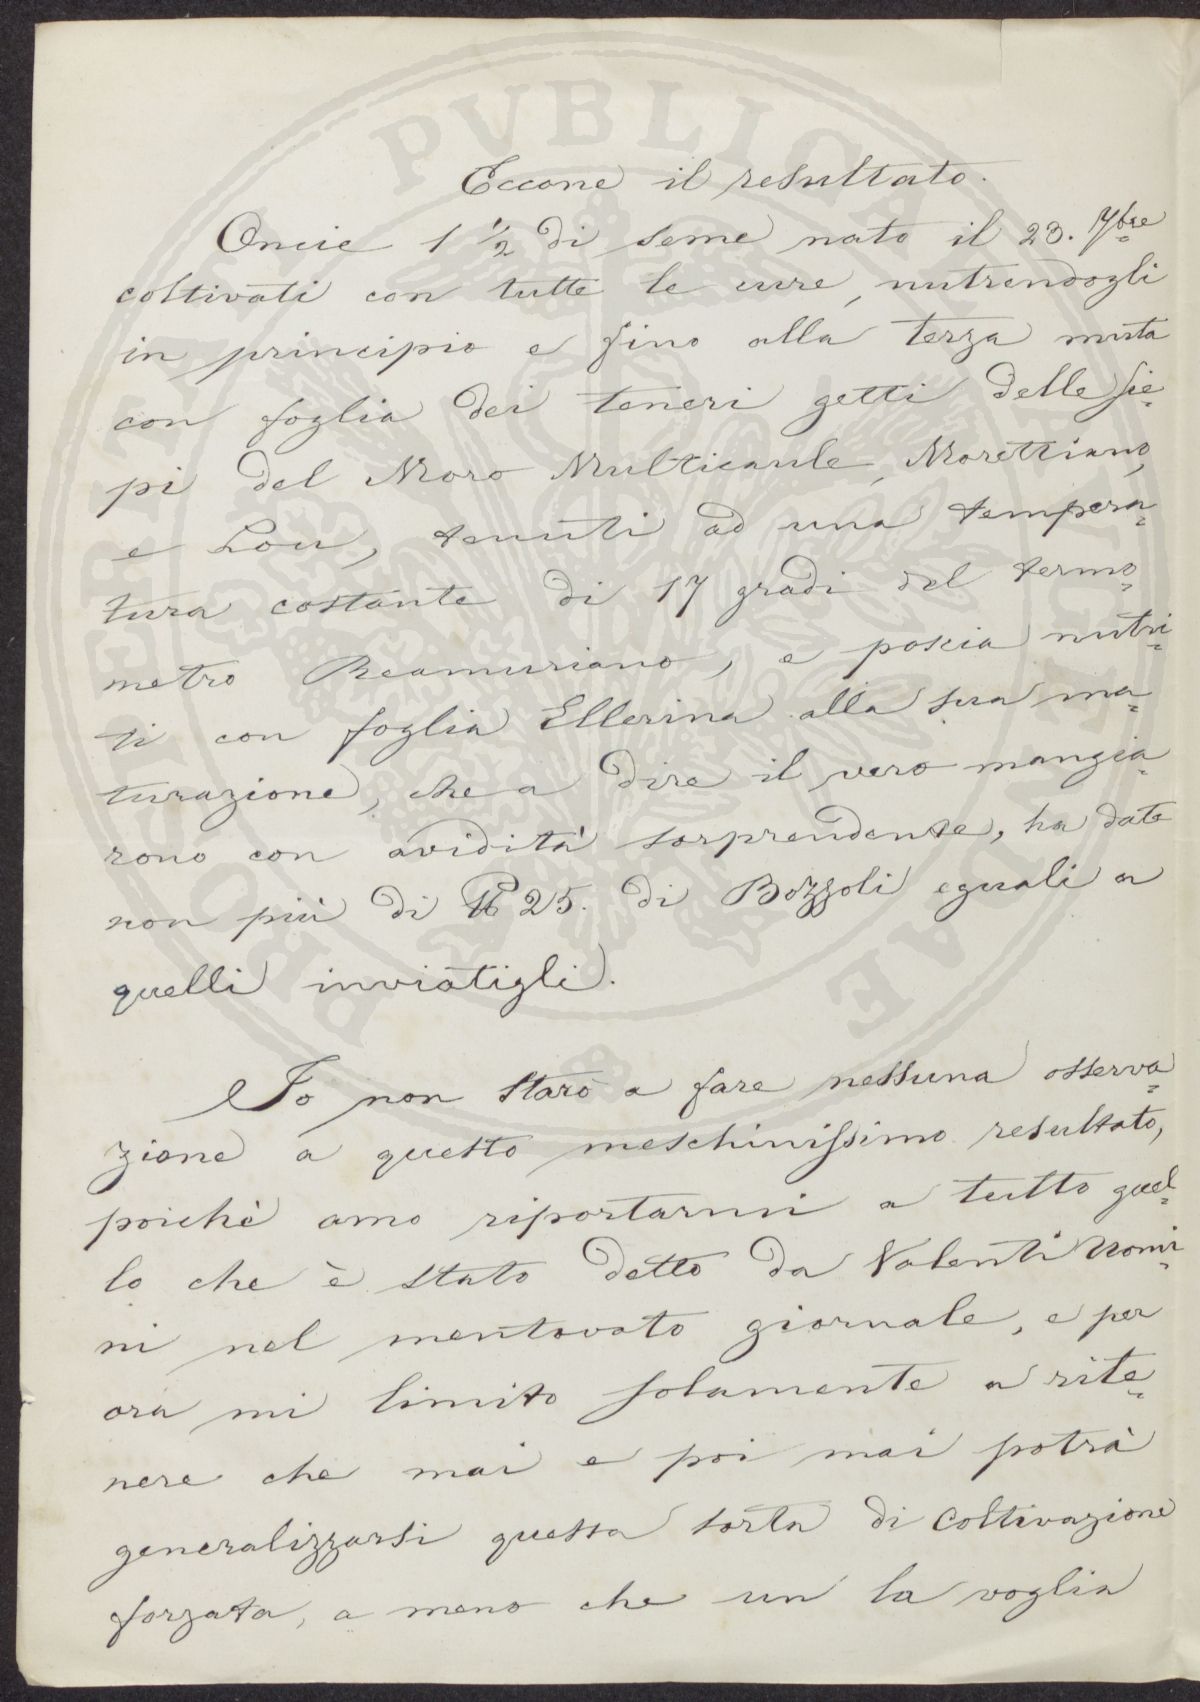 Eccone il resultato.
Oncie 1 1/2 di seme nato il 23. 7bre
coltivati con tutte le cure, nutrendogli
in principio e fino alla terza muta
con foglia dei teneri getti delle sie-
pi del Moro Multicaule, Morettiano,
e Lou, tenuti ad una tempera-
tura costante di 17 gradi del termo-
metro Reamuriano, e poscia nutri-
ti con foglia Ellerina alla sua ma-
turazione, che a dire il vero mangia-
rono con avidità sorprendente, ha dato
non più di ℔ 25. di Bozzoli eguali a
quelli inviatigli.
Io non starò a fare nessuna osserva-
zione a questo meschinissimo resultato,
poichè amo riportarmi a tutto quel-
lo che è stato detto da Valenti Uomi-
ni nel mentovato giornale, e per
ora mi limito solamente a rite-
nere che mai e poi mai potrà
generalizzarsi questa sorta di coltivazione
forzata, a meno che un la voglia